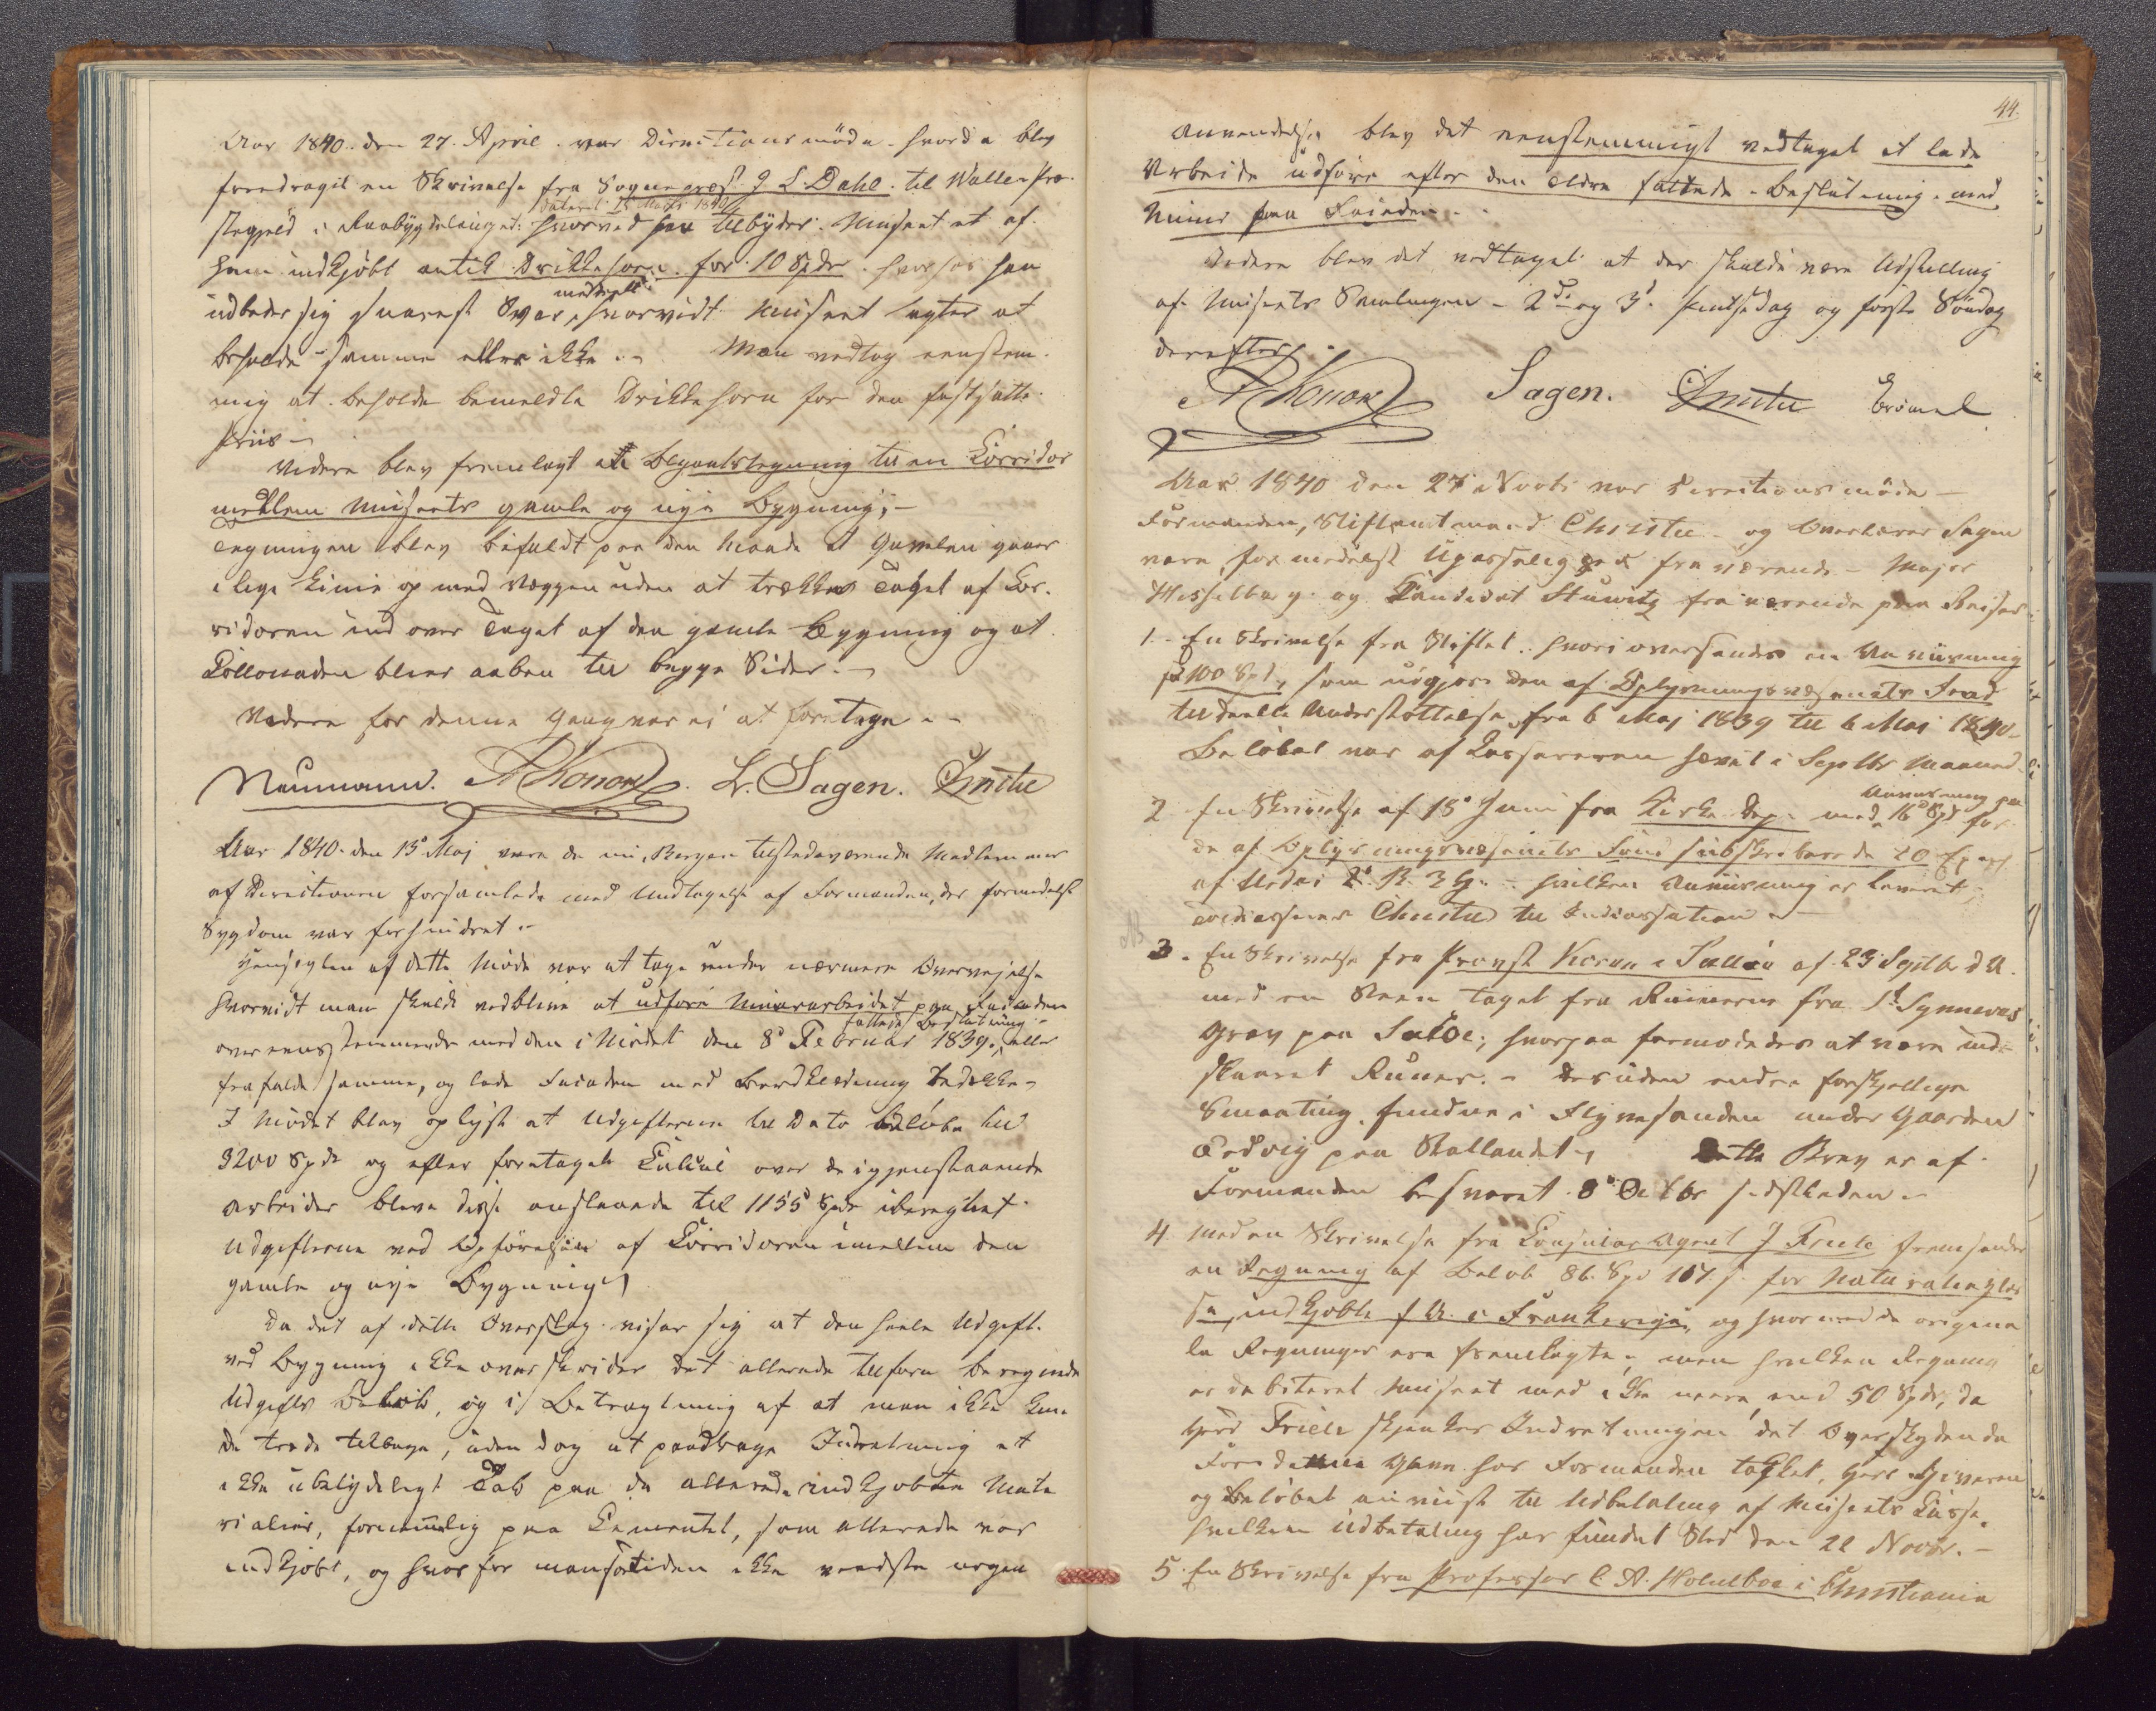 Aar 1840. den 27. April. var Directionsmöde. hvorda blev
foredragit en Skrivelse fra Sognepræst J. L. Dahl. til Walle Præ-
dateret 15 Marts 1840
stegjeld i Raabygdelauget: hvorved han tilbyder Museet et af
ham indkjöbt antik Drikkehorn for 10 Spdr. hvorhos han
udbeder sig snarest Svar, hvorvidt Museet agter at
beholde samme eller ikke. – Man vedtog eenstem-
mig at beholde bemeldte Drikkehorn for den fastsatte
Priis –
Videre blev fremlagt til en Corridor
mellem Museets gamle og nye Bygning; –
Tegningen blev bifaldt paa den Maade at Gavelen gaaer
i lige Linie op med Væggen uden at trække Taget af Cor-
ridoren ind over Taget af den gamle Bygning og at
Collonaden bliver aaben til begge Sider. –
Videre for denne Gang var ei at foretage. –
Neumann. Konow. L. Sagen. Christie
Aar 1840. den 15de Maj vare de i Bergen tilstedeværende Medlemmer
af Directionen forsamlede med Undtagelse af Formanden, der formedelst
Sygdom var forhindret. –
Hensigten af dette Möde var at tage under nærmere Overvejelse
hvorvidt man skulde vedblive at udföre Muurarbeidet paa Facaden
fattede Beslutning
overeensstemmende med den i Mödet den 8de Februar 1839, eller
frafalde samme, og lade Facaden med Bordklædning bedække –
I Mödet blev oplyst at Udgifterne til Dato belöbe til
3200 Spdr og efter foretaget Calcul over de igjenstaaende
Arbeider bleve disse anslaaede til 1155 Spdr iberegnet
Udgifterne ved Opförelsen af Corridoren imellem den
gamle og nye Bygning
Da det af dette Overslag viser sig at den heele Udgift
ved Bygning ikke overskrider det allerede tilforn beregnede
Udgifts Belöb, og i Betragtning af at man ikke kun-
de træde tilbage, uden dog at paadrage Indretning et
ikke ubetydeligt Tab paa de allerede indkjöbte Mate
rialier, fornemmelig paa Cementet, som allerede var
indkjöbt, og hvorfor man for tiden ikke vidste nogen
44.
Anvendelse, blev det eenstemmigt vedtaget at lade
Arbeide udföre efter den ældre fattede Beslutning, med
Muur paa Facaden. –
Videre blev det vedtaget at der skulde være Udstilling
af Museets Samlinger – 2den og 3die Pintsedag og förste Söndag
derefter. –
Konow Sagen. Christie
Aar 1840 den 27 Novbr var Directionsmöde –
Formanden, Stiftamtmand Christie – og Overlærer Sagen
vare formedelst Upasselighed fraværende – Major
Hesselberg og Candidat Stuwitz fraværende paa Reiser
1. – En Skrivelse fra Stiftet.. hvori oversendes en Anviisning
p 100 Spd., som udgjör den af Oplysningsvæsenets Fond
tildeelte Understöttelse, fra 6 Maj 1839 til 6 Maj 1840 –
Belöbet var af Kassereren hævet i Septbr Maaned
2 En Skrivelse af 15de Juni fra Kirke Dep. med Anviisning paa 16 Spd for
de af Oplysningsvæsenets Fond subskriberede 20 Expl
af Urda 2d B. 3 H. – hvilken Anviisning er leveret
Christie til Indcassation –
3. En Skrivelse fra Provst Koren i Sælle af 23 Septbr d A.
med en Steen taget fra Ruinerne fra St Synneves
Grav paa Selöe, hvorpaa formodedes at være ind-
skaaret Runer. – Desuden endre forskjellige
Smaating, fundne i Flyvesanden under Gaarden
Ervig paa Stallandet, Dette Brev er af
Formanden besvaret 8de Octbr sidstleden. –
4. Med en Skrivelse fra Consular Agent J Friele fremsendes
en Regning af Belöb 86. Spd 107 s. for Naturalie
indkjöbte f M. i Frankerige, og hvormed de origina
le Regninger ere fremlagte; men hvilken Regning
er debiteret Museet med ikke meere end 50 Spdr, da
Herr Friele skjenker Indretningen det Overskydende
For denne Gave har Formanden takket Herr Giveren
og Belöbet anviist til Udbetaling af Museets Casse,
hvilken Udbetaling har fundet Sted den 22 Novbr. –
5. En Skrivelse fra Professor C. A. Holmboe i Christiania